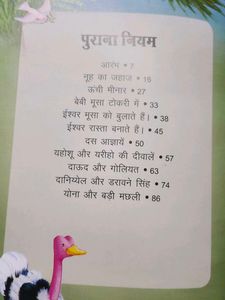 पुराना नियम
आरंभ • 7
नूह का जहाज • 16
ऊंची मीनार • 27
बेबी मूसा टोकरी में • 33
ईश्वर मूसा को बुलाते हैं। • 38
ईश्वर रास्ता बनाते हैं। • 45
दस आज्ञायें • 50
यहोशू और यरीहो की दीवालें • 57
दाऊद और गोलियत • 63
दानिय्येल और डरावने सिंह • 74
योना और बड़ी मछली • 86